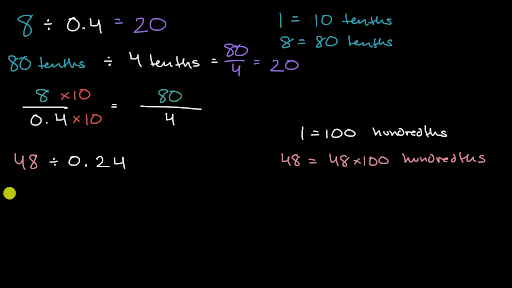 8 ÷ 0.4 = 20
1 = 10 tenths
8 = 80 tenths
80 tenths ÷ 4 tenths = 80/4 = 20
8 ×10 / 0.4 ×10 = 80 / 4
1 = 100 hundredths
48 ÷ 0.24
48 = 48×100 hundredths